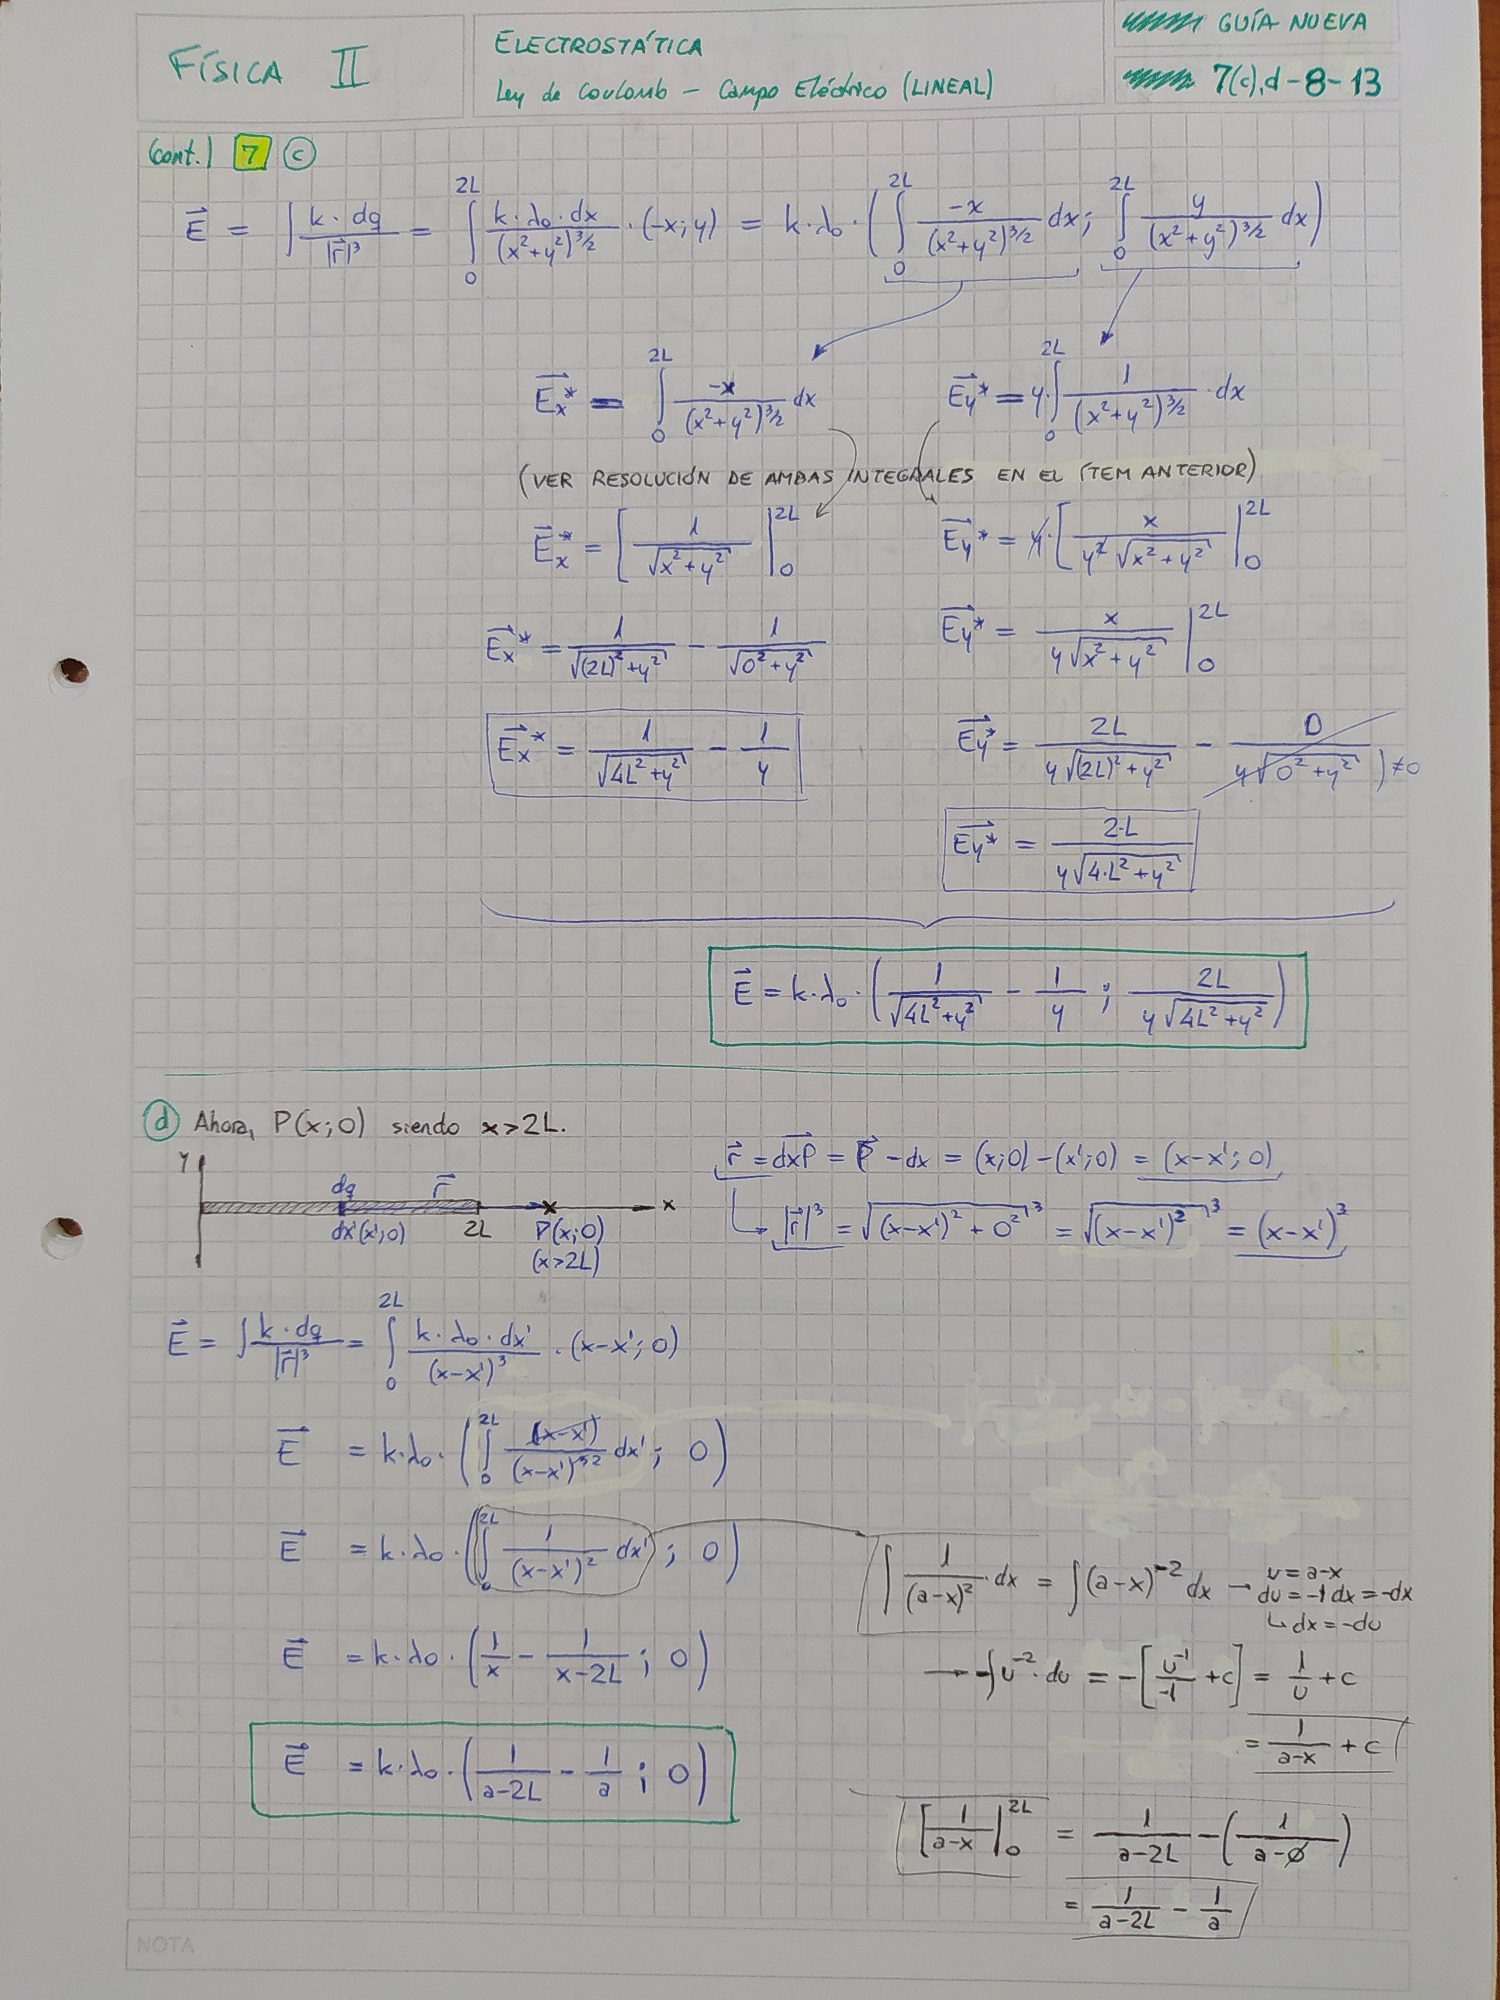 FÍSICA II
ELECTROSTÁTICA
Ley de Coulomb – Campo Eléctrico (LINEAL)
GUÍA NUEVA
7(c),d-8-13
(cont.) 7 c
E⃗ = ∫ k·dq/|r⃗|³ = ∫₀^2L k·λ₀·dx/(x²+y²)^3/2 · (-x;y) = k·λ₀·(∫₀^2L -x/(x²+y²)^3/2 dx; ∫₀^2L y/(x²+y²)^3/2 dx)
Ex⃗* = ∫₀^2L -x/(x²+y²)^3/2 dx
Ey⃗* = y·∫₀^2L 1/(x²+y²)^3/2 · dx
(VER RESOLUCIÓN DE AMBAS INTEGRALES EN EL ÍTEM ANTERIOR)
Ex⃗* = [1/√(x²+y²) |₀^2L
Ey⃗* = y·[x/(y²√(x²+y²)) |₀^2L
Ex⃗* = 1/√((2L)²+y²) - 1/√(0²+y²)
Ey⃗* = x/(y√(x²+y²)) |₀^2L
Ex⃗* = 1/√(4L²+y²) - 1/y
Ey⃗* = 2L/(y√((2L)²+y²)) - 0/(y√(0²+y²)) ) ≠0
Ey⃗* = 2·L/(y√(4·L²+y²))
E⃗ = k·λ₀·(1/√(4L²+y²) - 1/y ; 2L/(y√(4L²+y²)))
d Ahora, P(x;0) siendo x>2L.
r⃗ = dxP⃗ = P⃗ - dx = (x;0) - (x';0) = (x-x';0)
|r⃗|³ = √((x-x')²+0²)³ = √((x-x')²)³ = (x-x')³
y
dq r⃗
x
dx'(x';0) 2L P(x;0)
(x>2L)
E⃗ = ∫ k·dq/|r⃗|³ = ∫₀^2L k·λ₀·dx'/(x-x')³ · (x-x';0)
E⃗ = k·λ₀·(∫₀^2L (x-x')/(x-x')³² dx'; 0)
E⃗ = k·λ₀·(∫₀^2L 1/(x-x')² dx'; 0)
∫ 1/(a-x)² · dx = ∫(a-x)^-2 dx → u = a-x
du = -1 dx = -dx
↳ dx = -du
E⃗ = k·λ₀·(1/x - 1/(x-2L) ; 0)
→ -∫u^-2 · du = -[u^-1/-1 + c] = 1/u + c
= 1/(a-x) + c
E⃗ = k·λ₀·(1/(a-2L) - 1/a ; 0)
[1/(a-x) |₀^2L = 1/(a-2L) - (1/(a-0))
= 1/(a-2L) - 1/a
NOTA